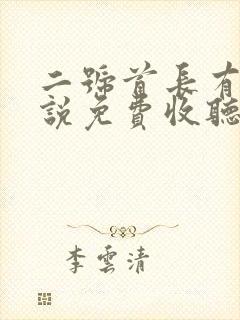 二號首長有
說免費收聽
李雲清